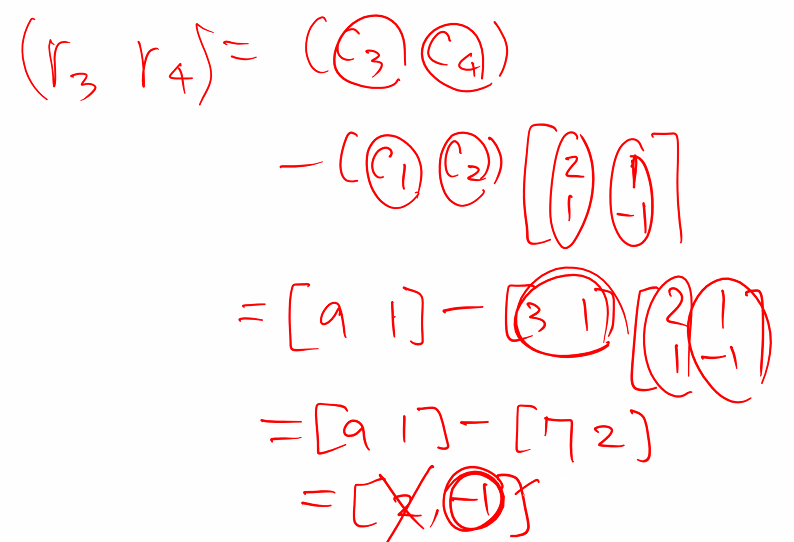 (r₃ r₄) = (c₃ c₄)
- (c₁ c₂) [2 1; 1 -1]
= [9 1] - [3 1] [2 1; 1 -1]
= [9 1] - [7 2]
= [2, -1]